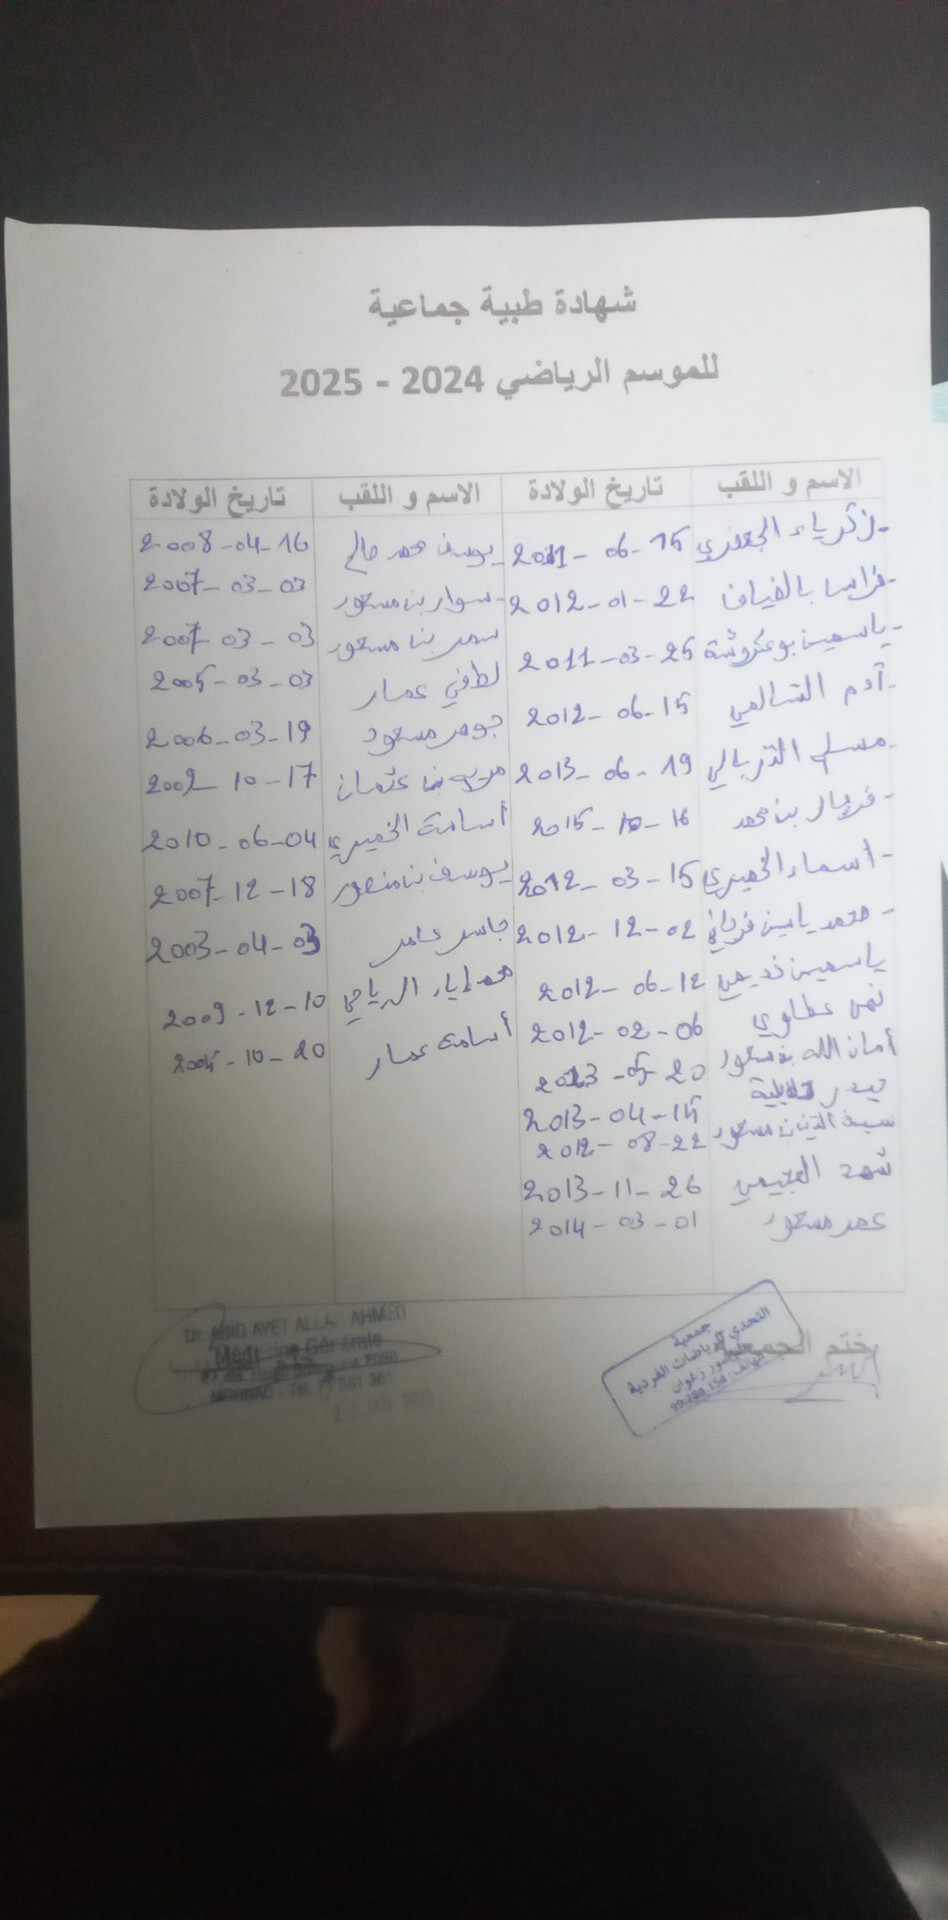 شهادة طبية جماعية
للموسم الرياضي 2024 - 2025
الاسم و اللقب تاريخ الولادة الاسم و اللقب تاريخ الولادة
- زكرياء الجعفري 2011 - 06 - 15 يوسف محمد صالح 2008-04-16
- فراس بالضياف 2012-01-22 سوار بن مسعود 2007-03-03
- ياسمين بوعكروشة 2011-03-25 سمر بن مسعود 2007-03-03
- آدم السالمي 2012-06-15 لطفي عمار 2005-03-03
- مسلم الغربالي 2013-06-19 جوهر مسعود 2006-03-19
- فريال بن محمد 2015-10-16 مريم بن عثمان 2002-10-17
- أسماء الخميري 2012-03-15 أسامة الخميري 2010-06-04
- محمد ياسين فرجاني 2012-12-02 يوسف بن منصور 2007-12-18
ياسمين خديمي 2012-06-12 جاسر عامر 2003-04-03
نهى عطاوي 2012-02-06 محمد إياد الرياحي 2009-12-10
أمان الله بن مسعود 2013-05-20 أسامة عمار 2005-10-20
حيدر 2013-04-15
سيف الدين بن مسعود 2012-08-22
شهد العجيمي 2013-11-26
عمر مسعود 2014-03-01
ختم الجمعية
جمعية
التحدي للرياضات الفردية
زغوان
Dr. ABID AYET ALLAH AHMED
Médecine Générale